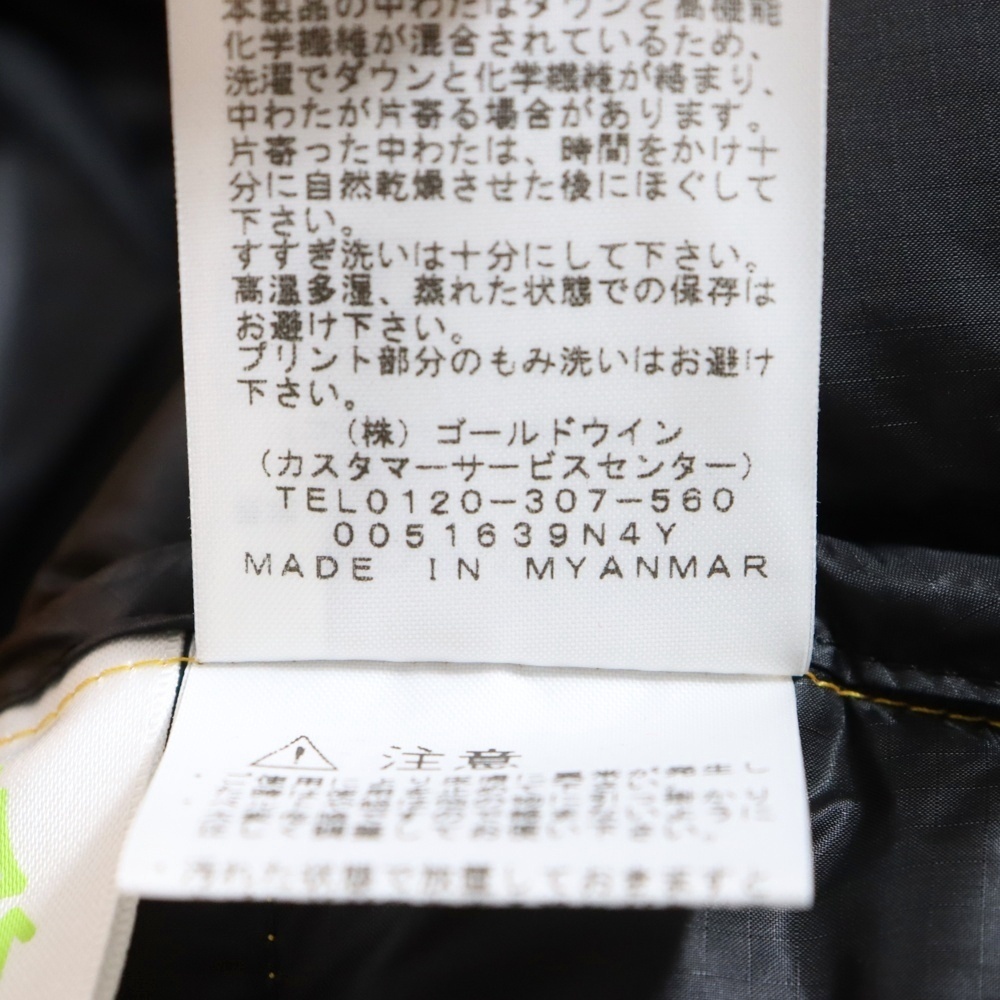 本製品の中わたはダウンと高機能
化学繊維が混合されているため、
洗濯でダウンと化学繊維が絡まり、
中わたが片寄る場合があります。
片寄った中わたは、時間をかけ十
分に自然乾燥させた後にほぐして
下さい。
すすぎ洗いは十分にして下さい。
高温多湿、蒸れた状態での保存は
お避け下さい。
プリント部分のもみ洗いはお避け
下さい。
(株)ゴールドウイン
(カスタマーサービスセンター)
TEL0120-307-560
0051639N4Y
MADE IN MYANMAR
注意
汚れた状態で放置しておきますと